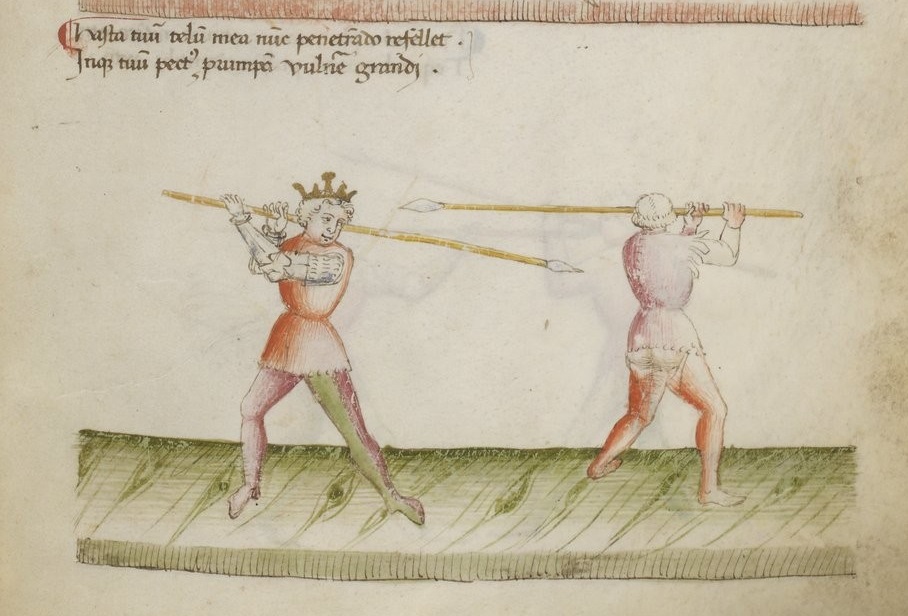 Hasta tuũ telũ mea nũc penetrãdo refellet .
Inqꝫ tuũ pectꝰ prumpã vulnẽ grandi .